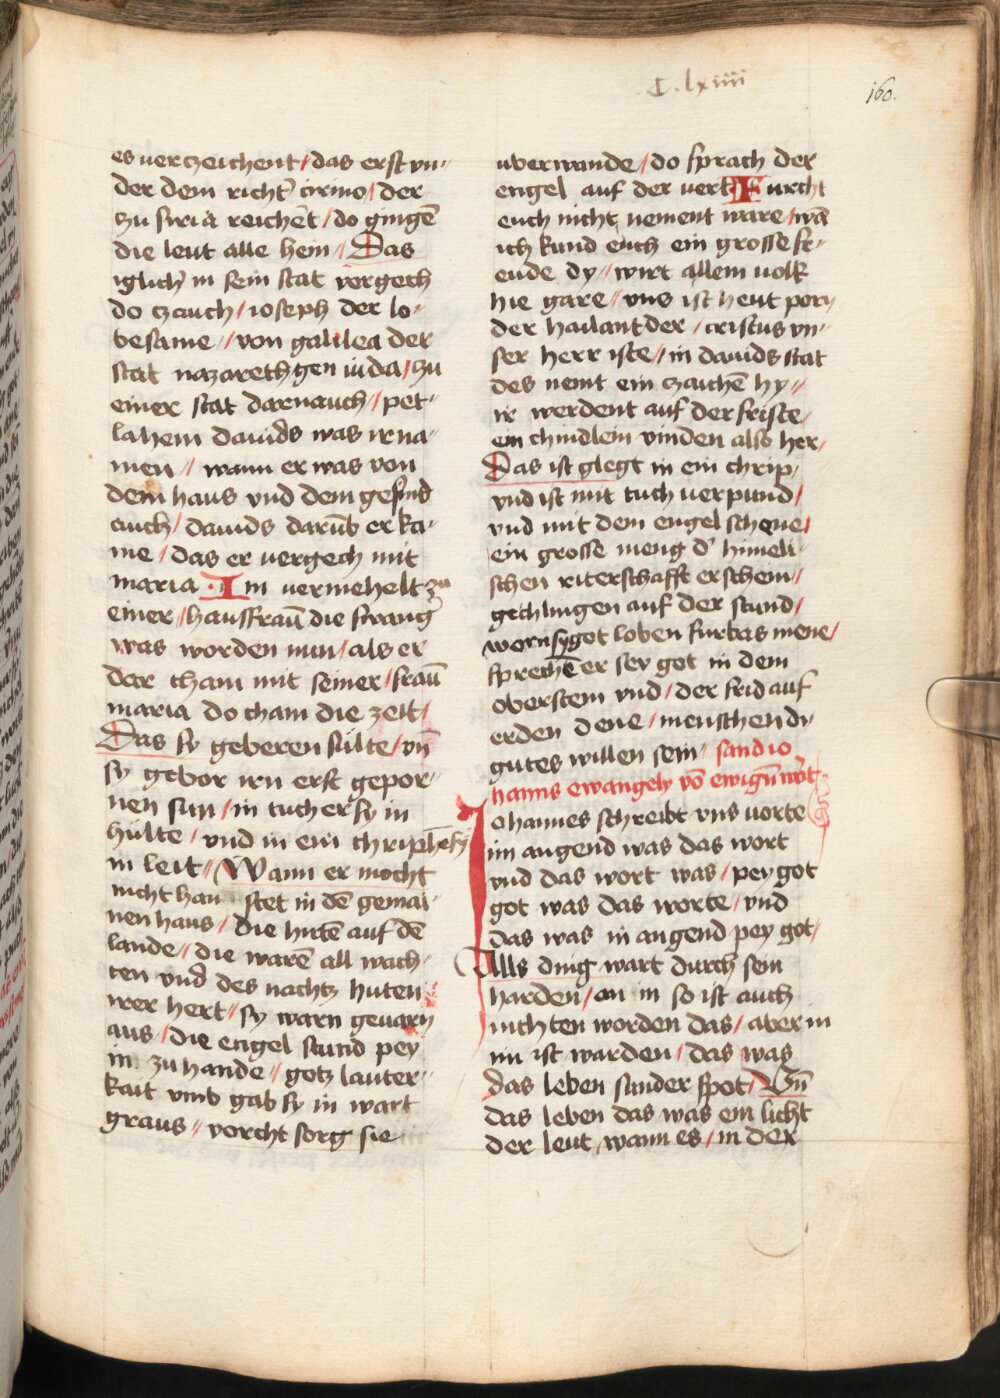 C. lxiiii
160.
es uerczeichent / das erst vn-
der dem richt' cirino / der
zu siria reichēt / do gingē
die leut alle hein / Das
iglich' in sein stat vergech
do czauch / ioseph der lo-
besame // von galilea der
stat nazareth gen iuda / zu
einer stat darnauch / pet-
lahem dauids was ir na-
men // wann er was von
dem haus vnd dem gesind
auch / dauids darūb er ka-
me / das er uergech mit
maria · Im uermehelt zu
einer / hausfraū die swang'
was worden nun / als er
dar cham mit seiner / fraū
maria do cham die zeit /
Das sy geberen sulte / vn̄
sy gebor irn erst gepor-
nen sun / in tucher sy in
hulte / vnd in ein chriphē sy
in leit // Wann er mocht
nicht han stet in dē gemai-
nen haus / die hutē auf dē
lande / die warē all wach-
ten vnd des nachtz huten
irer hert / sy warn geuarn
aus / die engel stund pey
in zu hande // gotz lauter-
kait vmb gab sy in wart
graus // vorcht sorg sie
uberwande / do sprach der
engel auf der uert · Furcht
euch nicht nement ware / wā
ich kund euch ein grosse fr-
eude dy // wirt allem uolk
hie gare / vns ist heut porn
der hailant der / cristus vn-
ser herr iste // in dauids stat
des nemt ein czaichē hy //
ir werdent auf der friste /
ein chindlein vinden also her /
Das ist glegt in ein chrip /
vnd ist mit tuch uerpund /
vnd mit dem engel schone /
ein grosse meng d' himeli-
schen riterschafft erschein /
gechlingen auf der stund /
worn sy got loben furbas mene /
sprechē er sey got in dem
oberstem vnd / der frid auf
erden dene / menschen dy
gutes willen sein / sand io
hanns ewangely vō ewigū wort
Iohannes schreibt vns uorte
im angend was das wort
vnd das wort was / pey got
got was das worte / vnd
das was in angend pey got /
Alls ding wart durch sein
harden / an in so ist auch
nichten worden das / aber in
im ist warden / das was
das leben sunder spot / Vn̄
das leben das was ein licht
der leut / wann es / in der